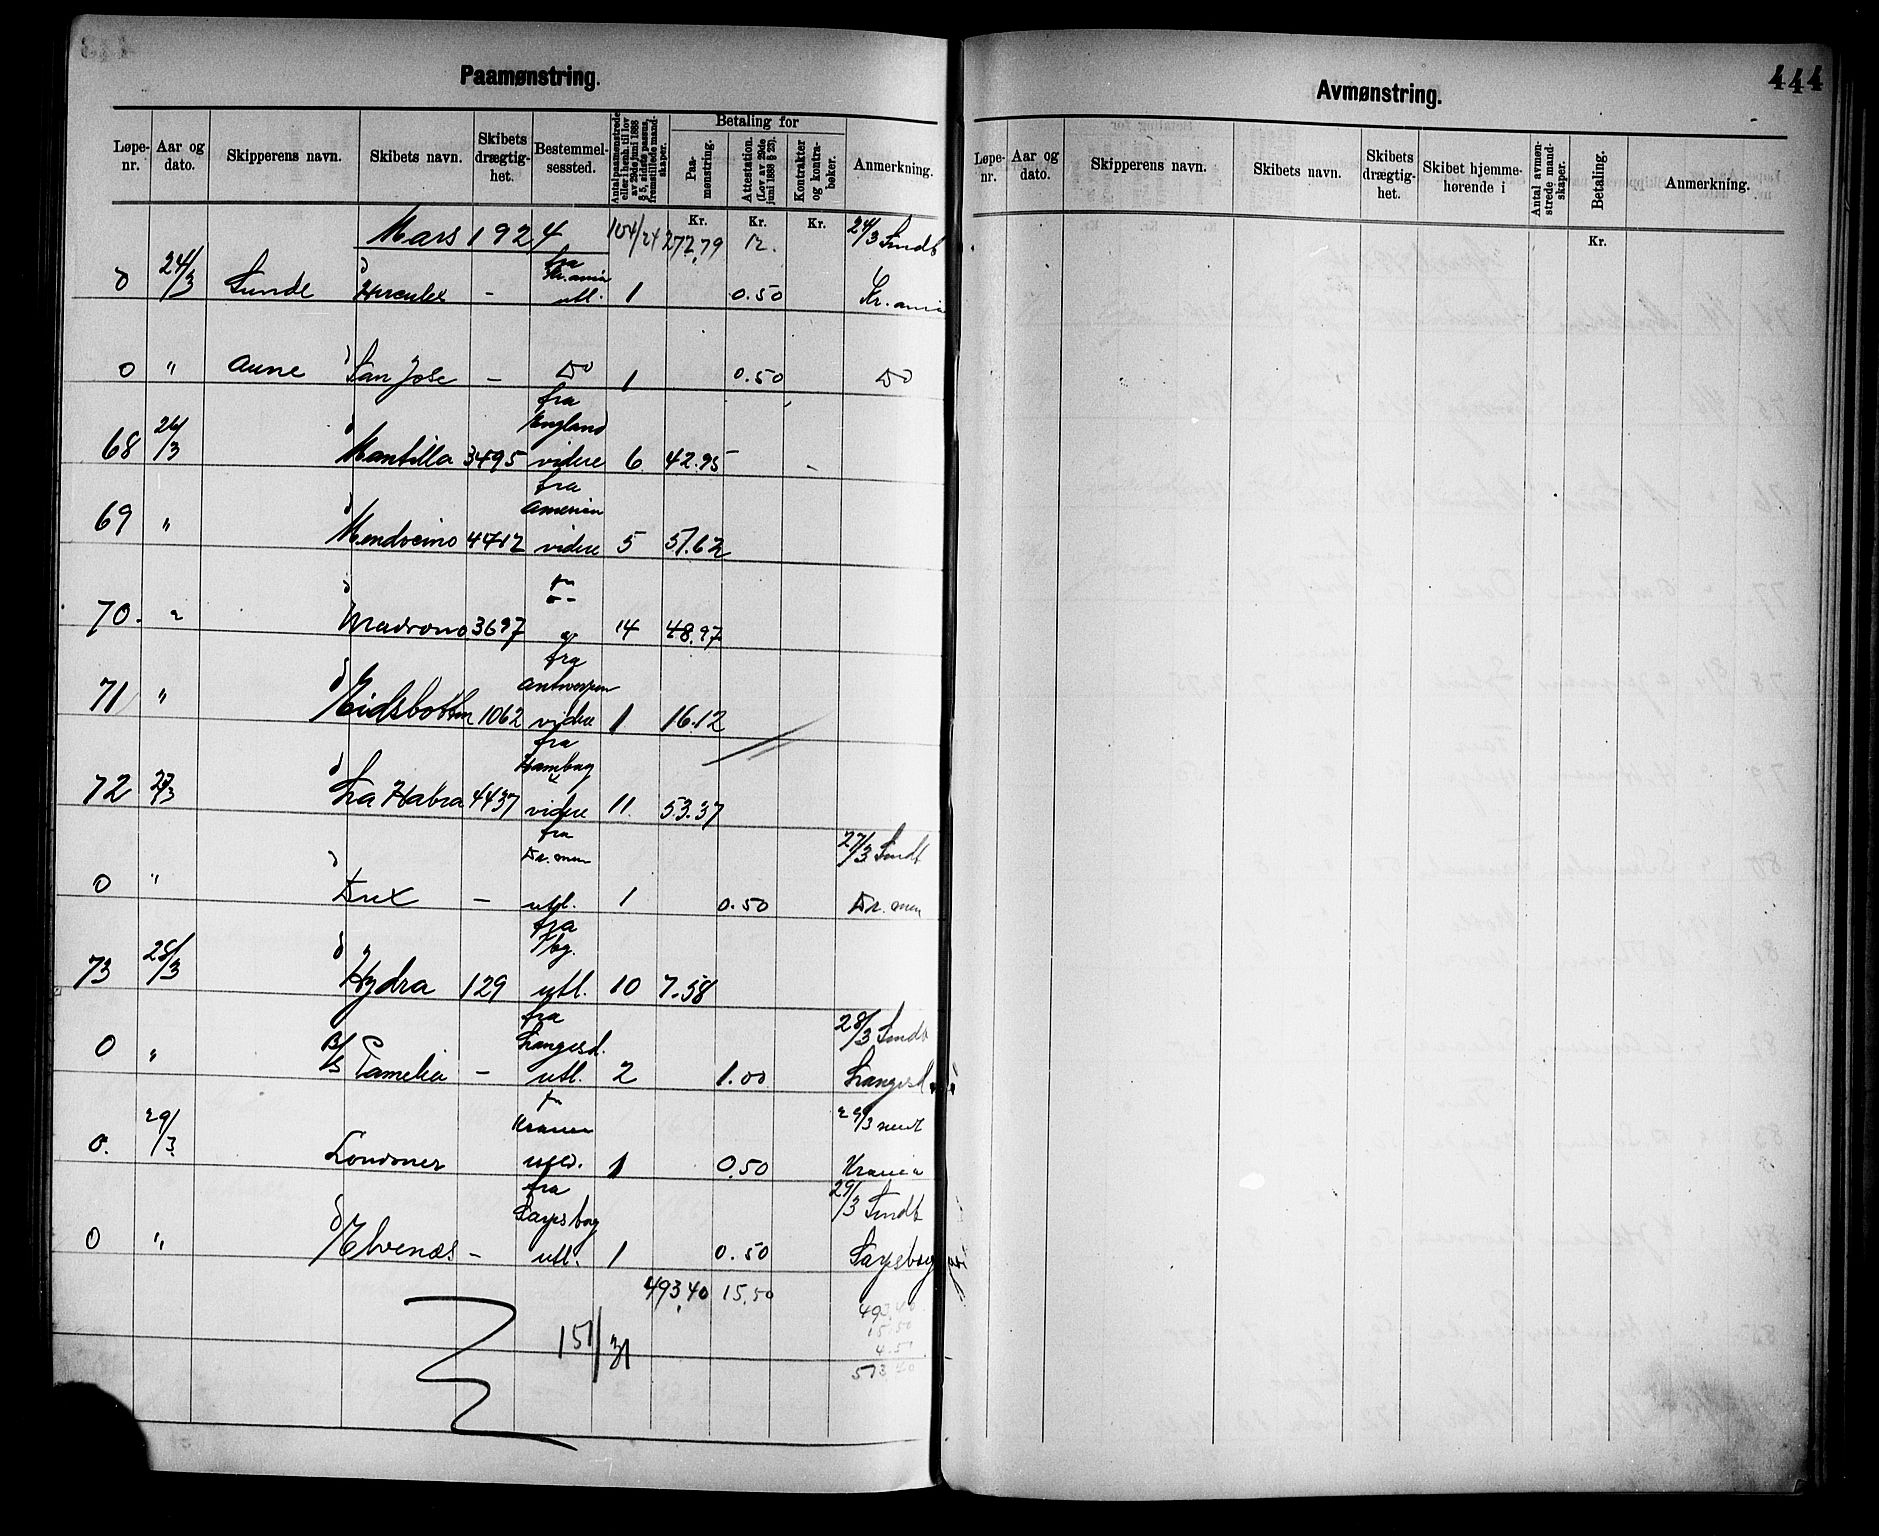 444
Paamønstring.
Løpe-nr. Aar og dato. Skipperens navn. Skibets navn. Skibets drægtig-het. Bestemmel-sessted. Antal paamønstrede eller i henh. til lov av 29de juni 1888 § 5, sidste passus, fremstillede mand-skaper. Betaling for Paa-mønstring. Attestation. (Lov av 29de juni 1888 § 25). Kontrakter og kontra-bøker. Anmerkning.
Kr. Kr. Kr.
Mars 1924 104/24 272,79 12. 24/3 Sendt
fra Kr.ania
0 24/3 Sunde Hercules - utl. 1 0.50 Kr.ania
0 " Aune San Jose - Do 1 0.50 Do
fra England
68 26/3 Mantilla 3495 videre 6 42.95
fra America
69 " Mendocino 4712 videre 5 51.62
70. " Madrono 3697 14 48.97
fra Antwerpen
71 " Eidsbotten 1062 videre 1 16.12
fra Hambug
72 27/3 La Habra 4437 videre 11. 53.37
fra Dr.men 27/3 Sendt
0 " Dux - utl. 1 0.50 Dr.men
fra Tbg.
73 28/3 Hydra 129 utl. 10 7.58
fra Langesd. 28/3 Sendt
0 " B/S Pamelia - utl. 2 1.00 Langesd.
fra Krania 29/3 sendt
0. 29/3 Londoner - 1 0.50 Krania
fra Sarpsborg 29/3 Sendt
0 " Elvenæs - utl. 1 0.50 Sarpsborg
493,40 15,50
493,40
15.50
4.51
151/31
513,40
Avmønstring.
Løpe-nr. Aar og dato. Skipperens navn. Skibets navn. Skibets drægtig-het. Skibet hjemme-hørende i Antal avmøn-strede mand-skaper. Betaling. Anmerkning.
Kr.